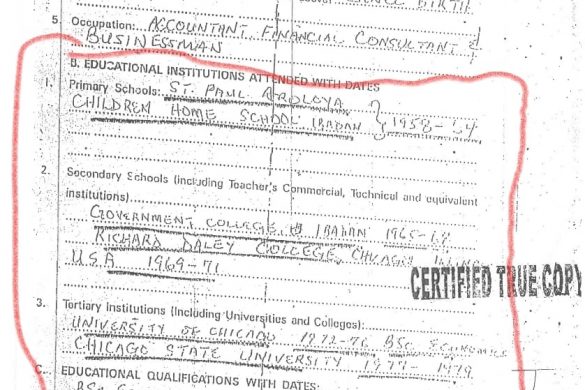 BIRTH
5. Occupation: ACCOUNTANT, FINANCIAL CONSULTANT &
BUSINESSMAN
B. EDUCATIONAL INSTITUTIONS ATTENDED WITH DATES
1. Primary Schools: ST. PAUL AROLOYA
CHILDREN HOME SCHOOL IBADAN } 1958-64
2. Secondary Schools (including Teacher's Commercial, Technical and equivalent
institutions)
GOVERNMENT COLLEGE IBADAN 1965-68
RICHARD DALEY COLLEGE, CHICAGO
U.S.A 1969-71
CERTIFIED TRUE COPY
3. Tertiary Institutions (Including Universities and Colleges):
UNIVERSITY OF CHICAGO 1972-76 BSc. ECONOMICS
CHICAGO STATE UNIVERSITY 1977-1979
C. EDUCATIONAL QUALIFICATIONS WITH DATES:
BSc